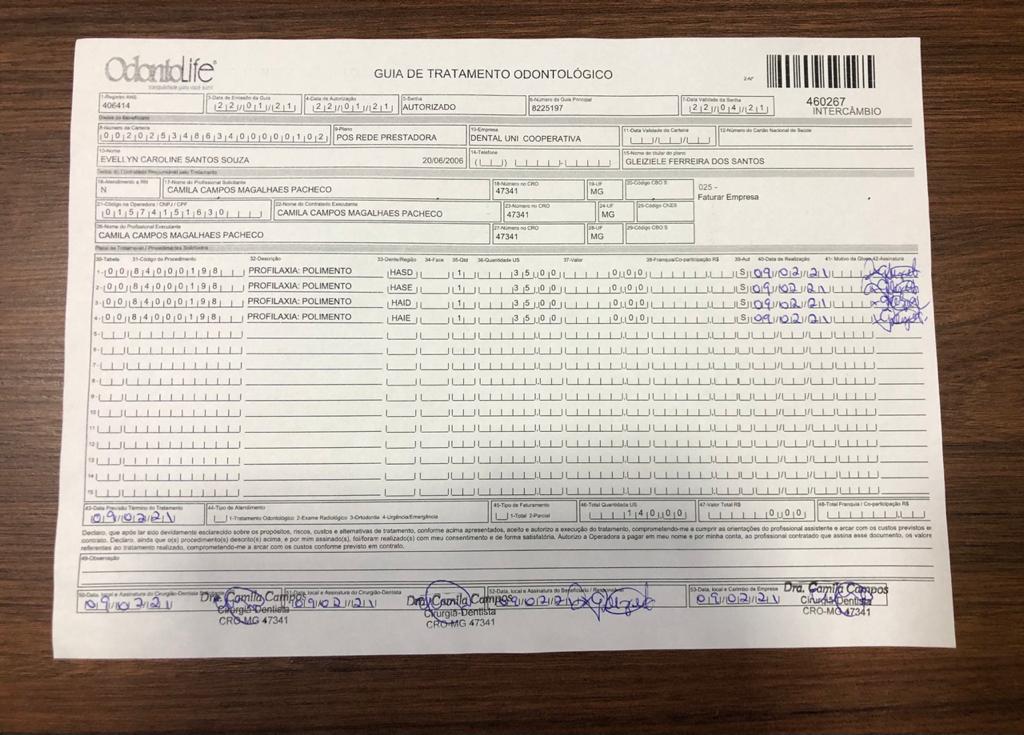 OdontoLife
tranquilidade para você sorrir
GUIA DE TRATAMENTO ODONTOLÓGICO
2-Nº
460267
INTERCÂMBIO
1-Registro ANS
406414
3-Data de Emissão da Guia
22/01/21
4-Data de Autorização
22/01/21
5-Senha
AUTORIZADO
6-Número da Guia Principal
8225197
7-Data Validade da Senha
22/04/21
Dados do Beneficiário
8-Número da Carteira
00202534863400000102
9-Plano
POS REDE PRESTADORA
10-Empresa
DENTAL UNI COOPERATIVA
11-Data Validade da Carteira
12-Número do Cartão Nacional de Saúde
13-Nome
EVELLYN CAROLINE SANTOS SOUZA 20/06/2006
14-Telefone
15-Nome do titular do plano
GLEIZIELE FERREIRA DOS SANTOS
Dados do Contratado Responsável pelo Tratamento
16-Atendimento a RN
N
17-Nome do Profissional Solicitante
CAMILA CAMPOS MAGALHAES PACHECO
18-Número no CRO
47341
19-UF
MG
20-Código CBO S
025 -
Faturar Empresa
21-Código na Operadora / CNPJ / CPF
01574151630
22-Nome do Contratado Executante
CAMILA CAMPOS MAGALHAES PACHECO
23-Número no CRO
47341
24-UF
MG
25-Código CNES
26-Nome do Profissional Executante
CAMILA CAMPOS MAGALHAES PACHECO
27-Número no CRO
47341
28-UF
MG
29-Código CBO S
Plano de Tratamento / Procedimentos Solicitados
30-Tabela 31-Código do Procedimento 32-Descrição 33-Dente/Região 34-Face 35-Qtd 36-Quantidade US 37-Valor 38-Franquia/Co-participação R$ 39-Aut 40-Data de Realização 41- Motivo da Glosa 42-Assinatura
1- 00 84000198 PROFILAXIA: POLIMENTO HASD 1 3500 000 S 09/02/21
2- 00 84000198 PROFILAXIA: POLIMENTO HASE 1 3500 000 S 09/02/21
3- 00 84000198 PROFILAXIA: POLIMENTO HAID 1 3500 000 S 09/02/21
4- 00 84000198 PROFILAXIA: POLIMENTO HAIE 1 3500 000 S 09/02/21
5-
6-
7-
8-
9-
10
11
12
13
14
15
43-Data Previsão Término do Tratamento
09/02/21
44-Tipo de Atendimento
1-Tratamento Odontológico 2-Exame Radiológico 3-Ortodontia 4-Urgência/Emergência
45-Tipo de Faturamento
1-Total 2-Parcial
46-Total Quantidade US
14000
47-Valor Total R$
000
48-Total Franquia / Co-participação R$
Declaro, que após ter sido devidamente esclarecido sobre os propósitos, riscos, custos e alternativas de tratamento, conforme acima apresentados, aceito e autorizo a execução do tratamento, comprometendo-me a cumprir as orientações do profissional assistente e arcar com os custos previstos e
contrato. Declaro, ainda que o(s) procedimento(s) descrito(s) acima, e por mim assinado(s), foi/foram realizado(s) com meu consentimento e de forma satisfatória. Autorizo a Operadora a pagar em meu nome e por minha conta, ao profissional contratado que assina esse documento, os valore
referentes ao tratamento realizado, comprometendo-me a arcar com os custos conforme previsto em contrato.
49-Observação
50-Data, local e Assinatura do Cirurgião-Dentista
09/02/21
Dra. Camila Campos
Cirurgiã-Dentista
CRO-MG 47341
local e Assinatura do Cirurgião-Dentista
09/02/21
Dra. Camila Campos
Cirurgiã-Dentista
CRO-MG 47341
52-Data, local e Assinatura do Beneficiário / Responsável
09/02/21
53-Data, local e Carimbo da Empresa
09/02/21
Dra. Camila Campos
Cirurgiã-Dentista
CRO-MG 47341